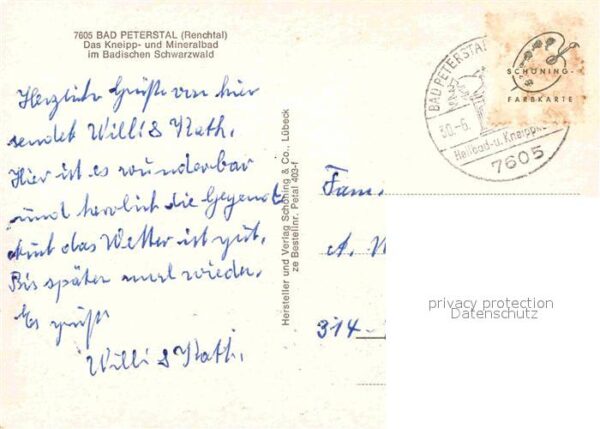 7605 BAD PETERSTAL (Renchtal)
Das Kneipp- und Mineralbad
im Badischen Schwarzwald
Herzliche Grüße von hier
sendet Willi & Kath.
Hier ist es wunderbar
und herrlich die Gegend
Auch das Wetter ist gut.
Bis später mal wieder.
Es grüßt
Willi & Kath.
Hersteller und Verlag Schöning & Co., Lübeck
ze Bestellnr. Petal 403-f
BAD PETERSTAL
30.-6.
Heilbad-u. Kneipp
7605
SCHÖNING-
FARBKARTE
Fam.
A.
314-
privacy protection
Datenschutz